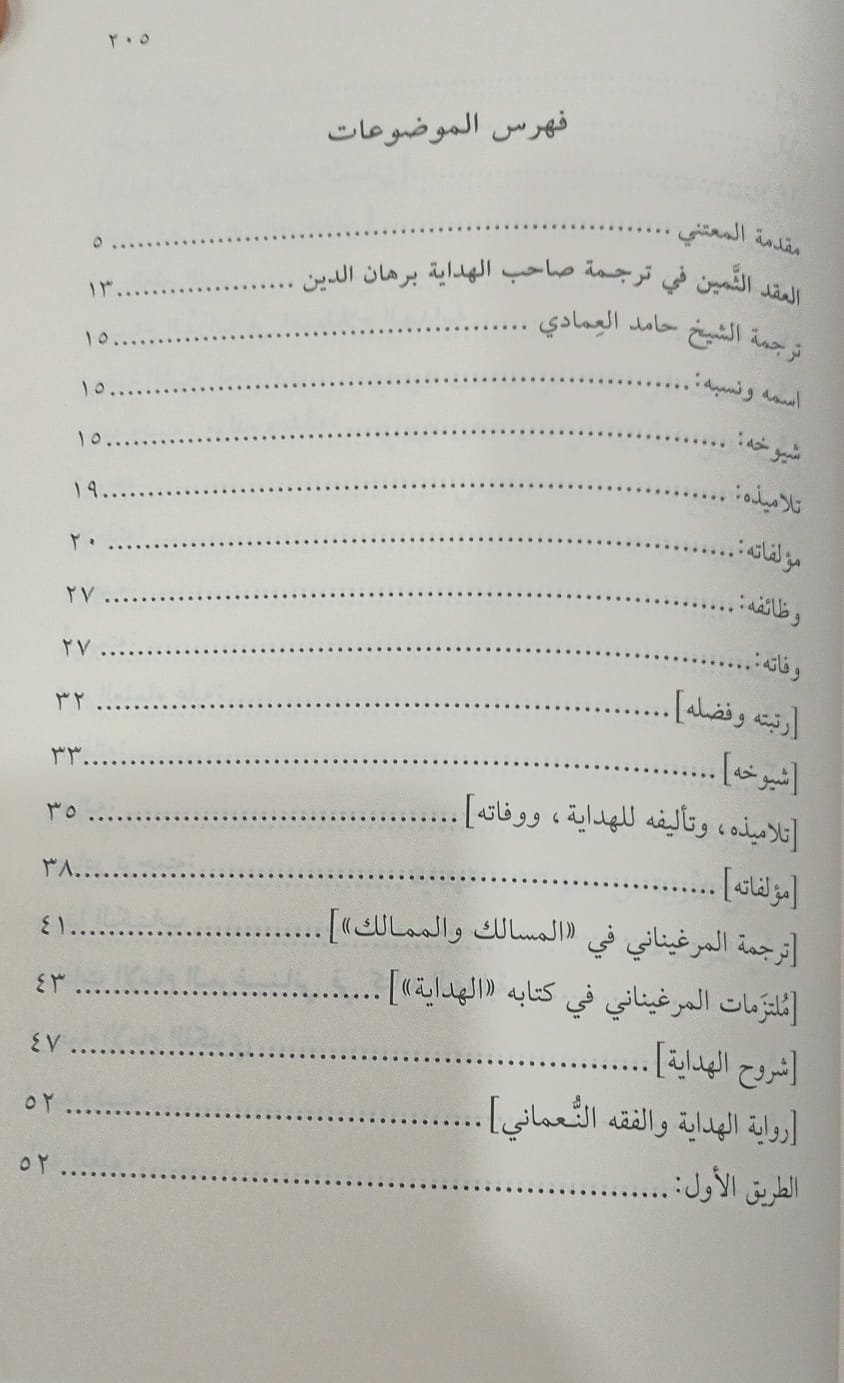 ٢٠٥
فهرس الموضوعات
مقدمة المعتني ........................................ ٥
العقد الثَّمين في ترجمة صاحب الهداية برهان الدين .................... ١٣
ترجمة الشيخ حامد العِمادي ........................................ ١٥
اسمه ونسبه: ........................................ ١٥
شيوخه: ........................................ ١٥
تلاميذه: ........................................ ١٩
مؤلفاته: ........................................ ٢٠
وظائفه: ........................................ ٢٧
وفاته: ........................................ ٢٧
[رتبته وفضله] ........................................ ٣٢
[شيوخه] ........................................ ٣٣
[تلاميذه، وتأليفه للهداية، ووفاته] ........................................ ٣٥
[مؤلفاته] ........................................ ٣٨
[ترجمة المرغيناني في «المسالك والممالك»] .............................. ٤١
[مُلتزَمات المرغيناني في كتابه «الهداية»] .............................. ٤٣
[شروح الهداية] ........................................ ٤٧
[رواية الهداية والفقه النُّعماني] ........................................ ٥٢
الطريق الأول: ........................................ ٥٢